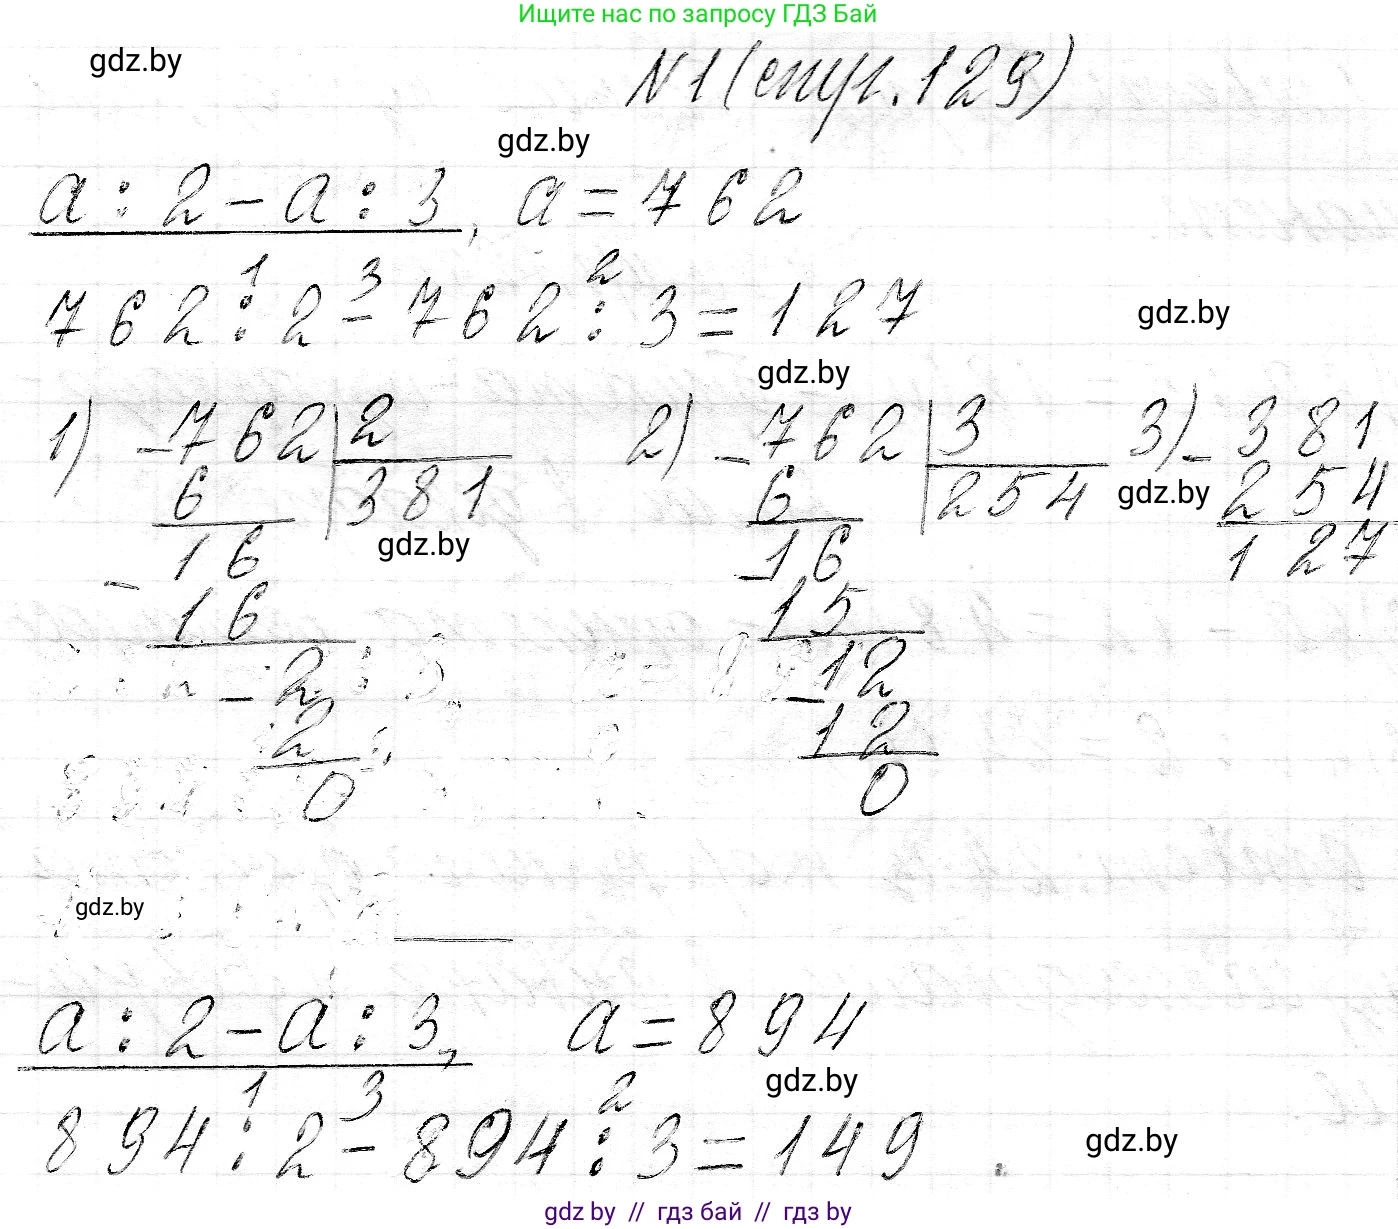 Ищите нас по запросу ГДЗ Бай
gdz.by
N1 (стр. 129)
gdz.by
a : 2 - a : 3, a = 762
1 3 2
762 : 2 - 762 : 3 = 127
gdz.by
gdz.by
1) -762 | 2 2) -762 | 3 3) -381
6 381 6 254 gdz.by 254
gdz.by
-16 -16 127
16 15
-2 -12
2 12
0 0
gdz.by
a : 2 - a : 3, a = 894
gdz.by
1 3 2
894 : 2 - 894 : 3 = 149
gdz.by
gdz by // гдз бай // гдз by